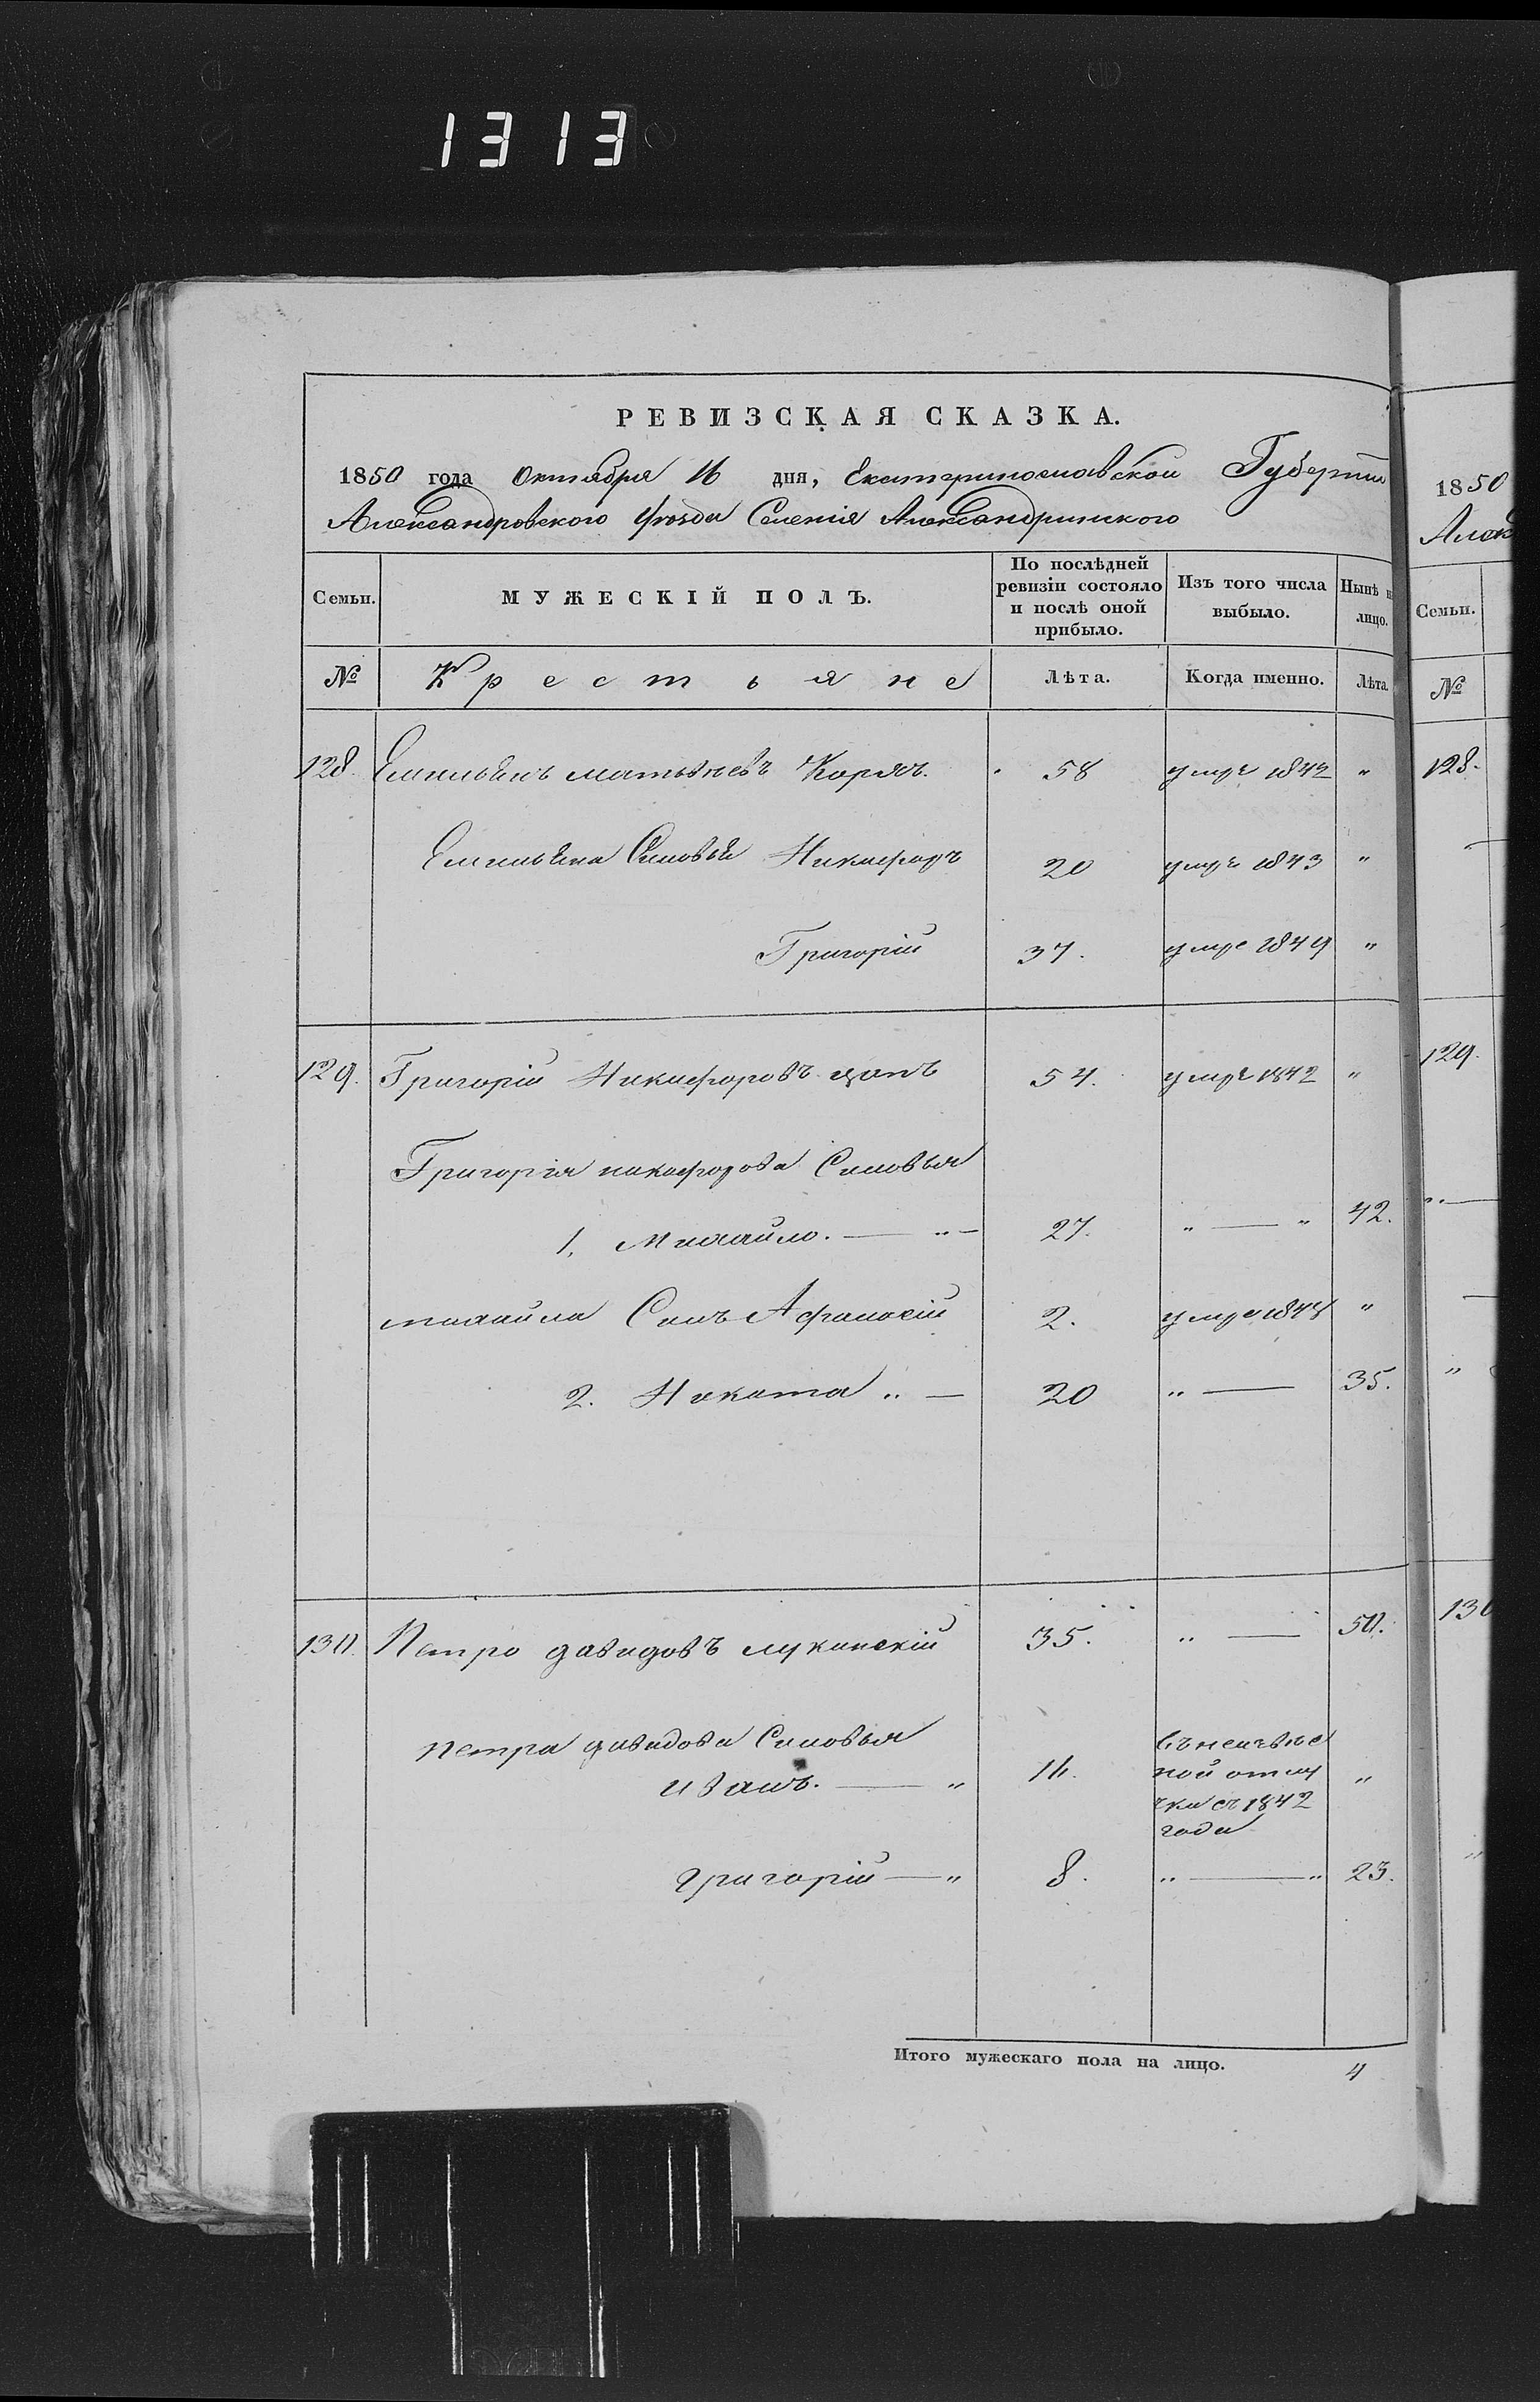 1313
РЕВИЗСКАЯ СКАЗКА.
1850 года Октября 16 дня, Екатеринославской Губерніи
Александровского Уѣзда Селенія Александринского
Семьи. МУЖЕСКІЙ ПОЛЪ. По послѣдней ревизіи состояло и послѣ оной прибыло. Изъ того числа выбыло. Нынѣ н лицо.
№ Крестьяне Лѣта. Когда именно. Лѣта.
128. Емельянъ Матвѣевъ 58 умре 1842 "
Емельяна Сыновья Никифоръ 20 умре 1843 "
Григорій 37. умре 1849 "
129. Григорій Никифоровъ цапъ 54. умре 1842 "
Григорія никифорова Сыновья
1. Михайло. — " — 27. " — " 42.
михайла Сынъ Афанасій 2. умре "
2. Никита " — 20 " — 35.
130. Петро давидовъ лукинскій 35. " — 50.
петра давидова Сыновья
иванъ. — " въ неизвѣс
ной отлу "
чки съ 1842
года
григорій — " 8. " — " 23.
Итого мужескаго пола на лицо. 4
1850
Алек
Семьи.
№
128.
129.
130